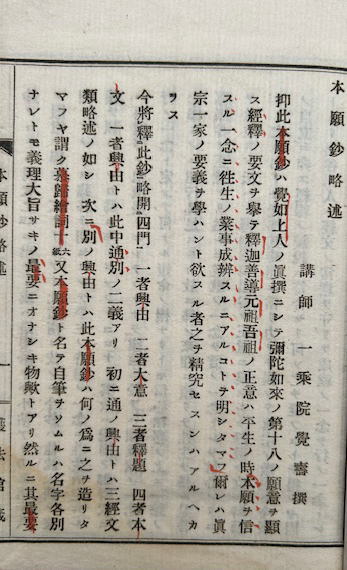 本願鈔略述
講師一乘院覺壽撰
抑此本願鈔ハ覺如上人ノ眞撰ニシテ彌陀如來ノ第十八ノ願意ヲ顯
ス經釋ノ要文ヲ擧テ釋迦善導元祖吾祖ノ正意ハ平生ノ時本願ヲ信
スル一念ニ徃生ノ業事成辨スルニアルコトヲ明シタマフ爾レハ眞
宗一家ノ要義ヲ學ハント欲スル者之ヲ精究セスンハアルヘカ
ラス
今將釋此鈔略開四門 一者興由 二者大意 三者釋題 四者本
文 一者興由トハ此中通別ノ二義アリ 初ニ通ノ興由トハ三經文
類略述ノ如シ 次ニ別ノ興由トハ此本願鈔ハ何ノ爲ニ之ヲ造リタ
マフヤ謂ク慕歸繪詞十六紙又本願鈔ト名テ自筆ヲソムルハ名字各別
ナレトモ義理大旨サキノ最要ニオナシキ物歟トアリ然ルニ其最要
本願鈔略述
一
護法館藏